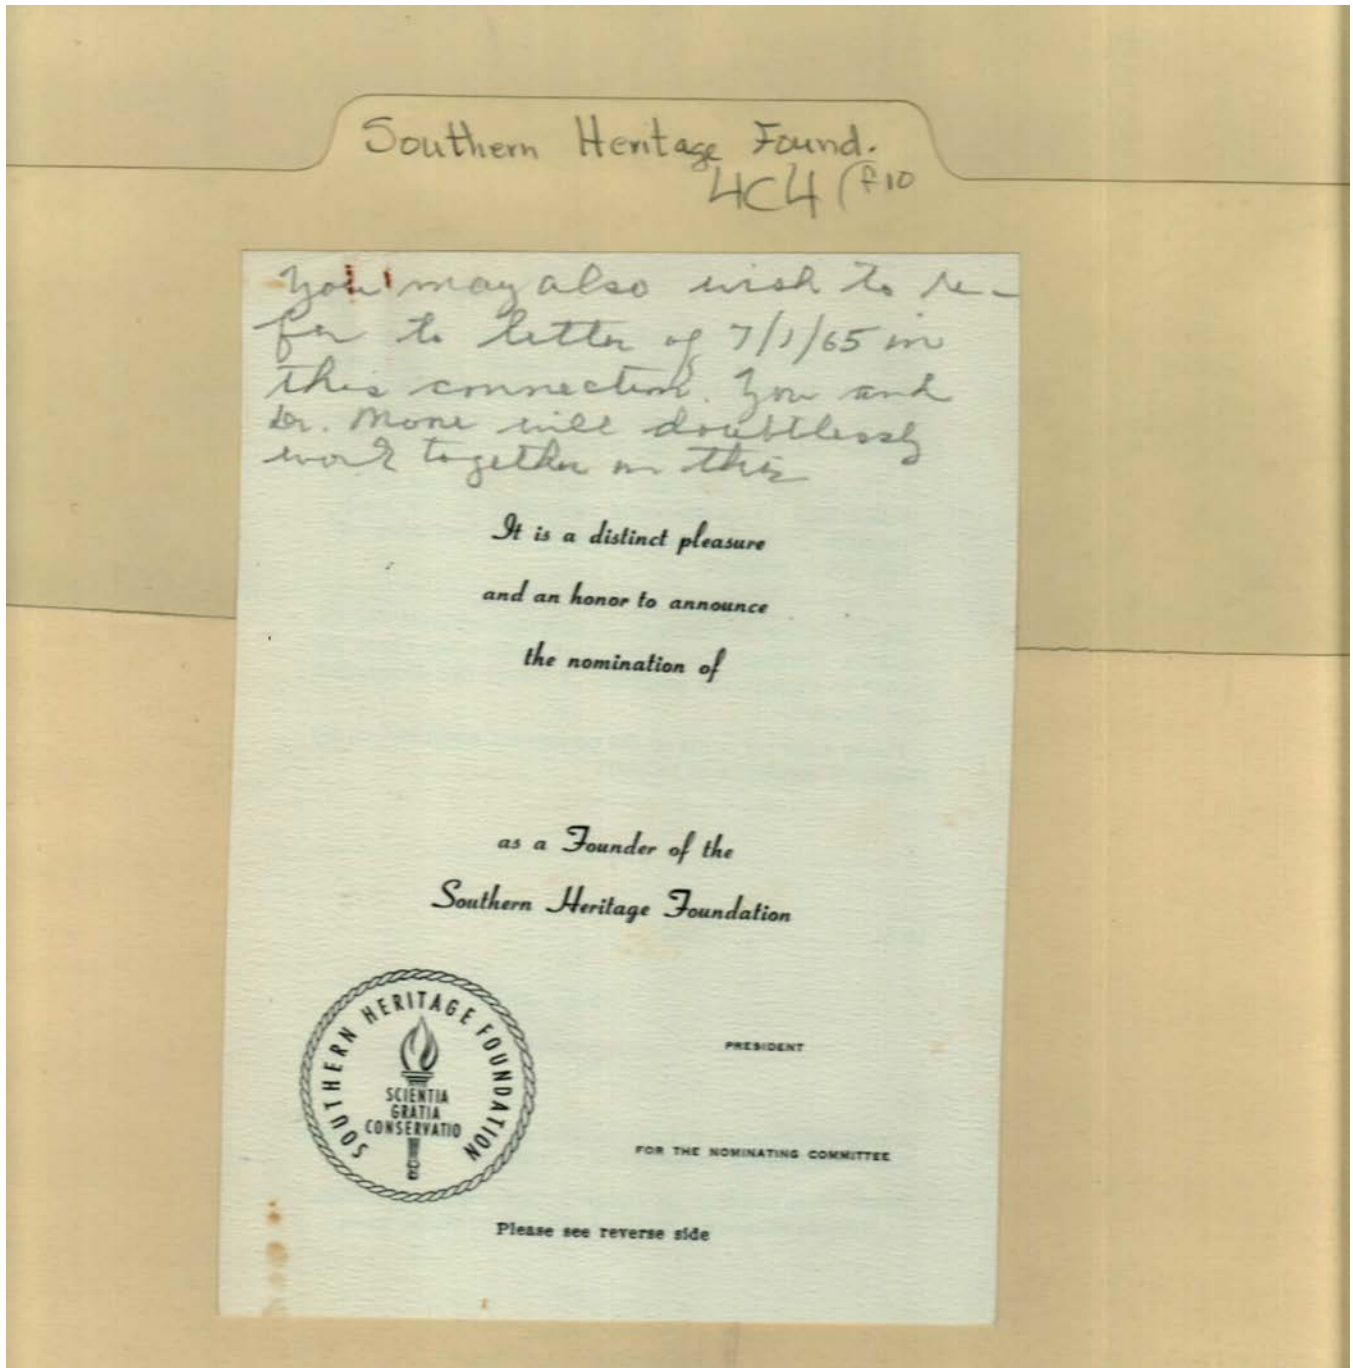 Southern Heritage Found.
4C4 (f10
You may also wish to re-
fer to letter of 7/1/65 in
this connection. You and
Dr. Mone will doubtlessly
work together on this
It is a distinct pleasure
and an honor to announce
the nomination of
as a Founder of the
Southern Heritage Foundation
SOUTHERN HERITAGE FOUNDATION
SCIENTIA
GRATIA
CONSERVATIO
PRESIDENT
FOR THE NOMINATING COMMITTEE
Please see reverse side